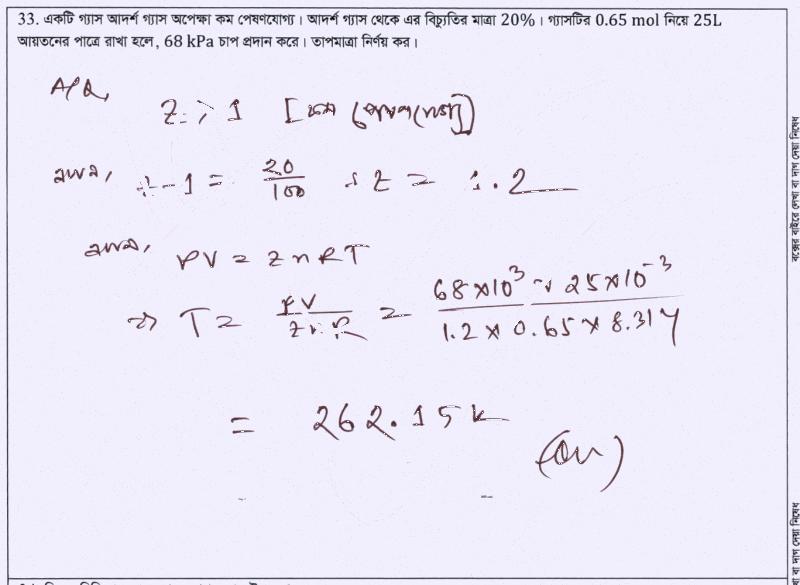 33. একটি গ্যাস আদর্শ গ্যাস অপেক্ষা কম পেষণযোগ্য। আদর্শ গ্যাস থেকে এর বিচ্যুতির মাত্রা 20%। গ্যাসটির 0.65 mol নিয়ে 25L
আয়তনের পাত্রে রাখা হলে, 68 kPa চাপ প্রদান করে। তাপমাত্রা নির্ণয় কর।
A/Q,
Z > 1 [কম
আবার, z - 1 = 20/100 ∴ z = 1.2
আবার, PV = znRT
⇒ T = PV/znR = 68×10³ × 25×10⁻³/1.2 × 0.65 × 8.314
= 262.15 k
(Ans)
বক্সের বাইরে লেখা বা দাগ দেয়া নিষেধ
বা দাগ দেয়া নিষেধ